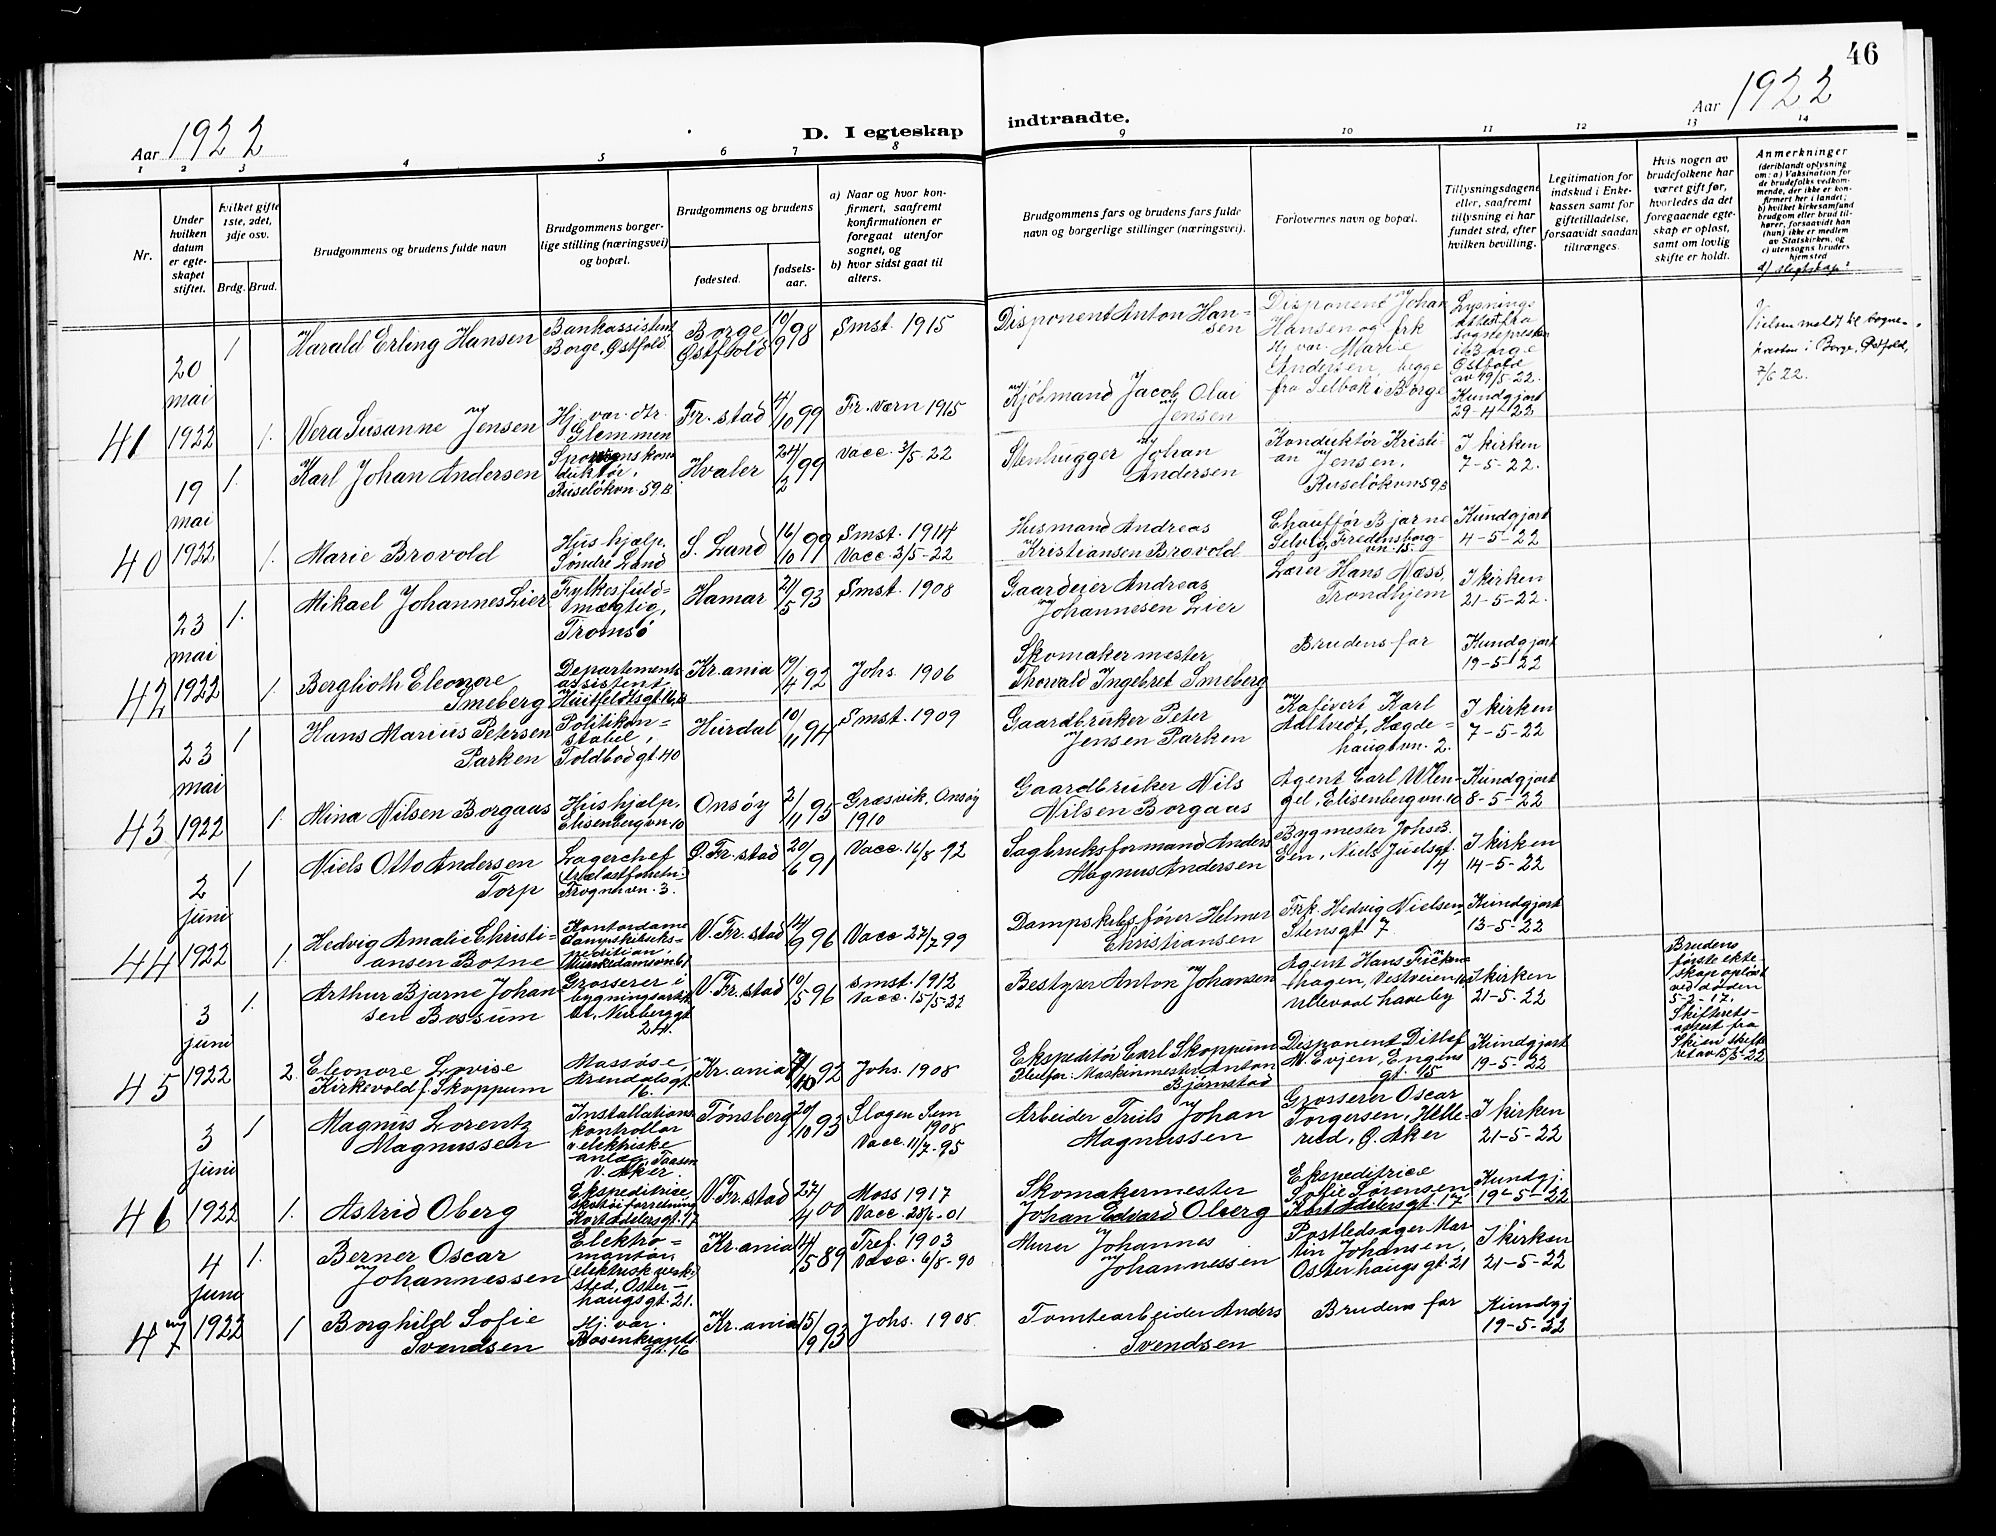 46
Aar 1922
D. I egteskap indtraadte.
Aar 1922
1 2 3 4 5 6 7 8 9 10 11 12 13 14
Nr.
Under hvilken datum er egteskapet stiftet.
hvilket gifte 1ste, 2det, 3dje osv.
Brdg. Brud.
Brudgommens og brudens fulde navn
Brudgommens borgerlige stilling (næringsvei) og bopæl.
Brudgommens og brudens
fødested.
fødselsaar.
a) Naar og hvor konfirmert, saafremt konfirmationen er foregaat utenfor sognet, og
b) hvor sidst gaat til alters.
Brudgommens fars og brudens fars fulde navn og borgerlige stillinger (næringsvei).
Forlovernes navn og bopæl.
Tillysningsdagene eller, saafremt tillysning ei har fundet sted, efter hvilken bevilling.
Legitimation for indskud i Enkekassen samt for giftetilladelse, forsaavidt saadan tiltrænges.
Hvis nogen av brudefolkene har været gift før, hvorledes da det foregaaende egteskap er opløst, samt om lovlig skifte er holdt.
Anmerkninger
(deriblandt oplysning om: a) Vaksination for de brudefolks vedkommende, der ikke er konfirmert her i landet;
b) hvilket kirkesamfund brudgom eller brud tilhører, forsaavidt han (hun) ikke er medlem av Statskirken, og
c) utensogns bruders hjemsted
d) slegtskap?
41 20 mai 1922
1 Harald Erling Hansen Bankassistent Borge, Østfold Borge Østfold 19/9 98 Smst. 1915 Disponent Anton Hansen Disponent Johan Hansen og frk Hj. var. Marie Andersen, begge fra Selbak i Borge Lysningsattest fra sognepresten i Borge Østfold av 19/5-22.
Vielsen meldt til sognepresten i Borge, Østfold, 7/6 22.
1. Vera Susanne Jensen Hj. var. dtr. Glemmen Fr.stad 4/10 99 Fr.værn 1915 Kjøbmand Jacob Olai Jensen Kundgjort 29-4-22
40 19 mai 1922
1. Karl Johan Andersen Sporvognskonduktør, Ruseløkvn. 59 B. Hvaler 24/2 99 Vacc. 3/5-22 Stenhugger Johan Andersen Konduktør Kristian Jensen, Ruseløkvn 59 B I kirken 7-5-22.
1. Marie Brovold Hushjælp, Søndre Land S. Land 16/10 99 Smst. 1914 Vacc. 3/5-22 Husmand Andreas Kristiansen Brovold Chauffør Bjarne Selvig, Fredensborgvn. 15. Kundgjort 4-5-22
42 23 mai 1922
1. Mikael Johannes Lier Fylkesfuldmægtig, Tromsø Hamar 21/5 93 Smst. 1908 Gaardeier Andreas Johannesen Lier Lærer Hans Næss, Trondhjem I kirken 21-5-22.
1. Berglioth Eleonore Smeberg Departementsassistent Huitfeldtsgt. 16, B Kr.ania 19/4 92 Johs. 1906 Skomakermester Thorvald Ingebret Smeberg Brudens far Kundgjort 19-5-22
43 23 mai 1922
1 Hans Marius Petersen Parken Politikonstabel, Toldbodgt 40 Hurdal 10/11 94 Smst. 1909 Gaardbruker Peter Jensen Parken Kafévert Karl Adltvedt, Hægdehaugsvn. 2. I kirken 7-5-22
1. Mina Nilsen Borgaas Hushjælp, Elisenbergvn. 10 Onsøy 2/11 95 Græsvik, Onsøy 1910 Gaardbruker Nils Nilsen Borgaas Agent Carl Wengel, Elisenbergvn. 10 Kundgjort 8-5-22
44 2 juni 1922
1 Niels Otto Andersen Torp Lagerchef Frognervn. 3. Ø. Fr.stad 20/6 91 Vacc. 16/8-92 Sagbruksformand Anders Magnus Andersen Bygmester Johs B. Een, Niels Juelsgt. 14 I kirken 14-5-22
1. Hedvig Amalie Christiansen Botne Kontordame dampskibsekspedition. Munkedamsvn. 61 V. Fr.stad 14/9 96 Vacc 27/7 99 Dampskibsfører Helmer Christiansen Frk. Hedvig Nielsen, Stensgt 7 Kundgjort 13-5-22
45 3 juni 1922
1. Arthur Bjarne Johansen Bossum Grosserer i bygningsartikler, Neuberggt 24. V. Fr.stad 10/5 96 smst. 1912 Vacc. 15/5-22 Bestyrer Anton Johansen Agent Hans Frickenhagen, Vestveien Ullevaal haveby I kirken 21-5-22
Brudens første ekteskap opløst ved døden 5-2-17. Skifteretsattest fra Skien skifteret av 15/5-22
2. Eleonore Lovise Kirkevold f. Skoppum Massøse, Arendalsgt. 16. Kr.ania /10 92 Johs. 1908 Ekspeditør Carl Skoppum Pleiefar: Maskinmester Anton Bjørnstad Disponent Ditlef M. Evjen, Engensgt. 15 Kundgjort 19-5-22
46 3 juni 1922
1 Magnus Lorentz Magnussen Installationskontrollør v. elektriske anlæg, Taasen V. Aker Tønsberg 20/10 93 Slagen Sem 1908 Vacc. 11/7-95 Arbeider Truls Johan Magnussen Grosserer Oscar Torgersen, Hellerud, Ø. Aker I kirken 21-5-22
1. Astrid Oberg Ekspeditrice, skotøiforretning Kort Adelersgt. 17 V. Fr.stad 27/4 00 Moss 1917 Vacc. 28/6-01 Skomakermester Johan Edvard Oberg Ekspeditrice Sofie Sørensen Kort Adelersgt. 17 Kundgj. 19-5-22
47 4 juni 1922
1. Berner Oscar Johannessen Elektromontør, (elektrisk verksted), Osterhausgt. 21. Kr.ania 14/5 89 Tref. 1903 Vacc. 6/8-90 Murer Johannes Johannessen Postledsager Martin Johansen, Osterhausgt. 21 I kirken 21-5-22
1 Borghild Sofie Svendsen Hj. var. Rosenkrantzgt. 16 Kr.ania 15/9 93 Johs. 1908 Tomtearbeider Anders Svendsen Brudens far Kundgj 19-5-22